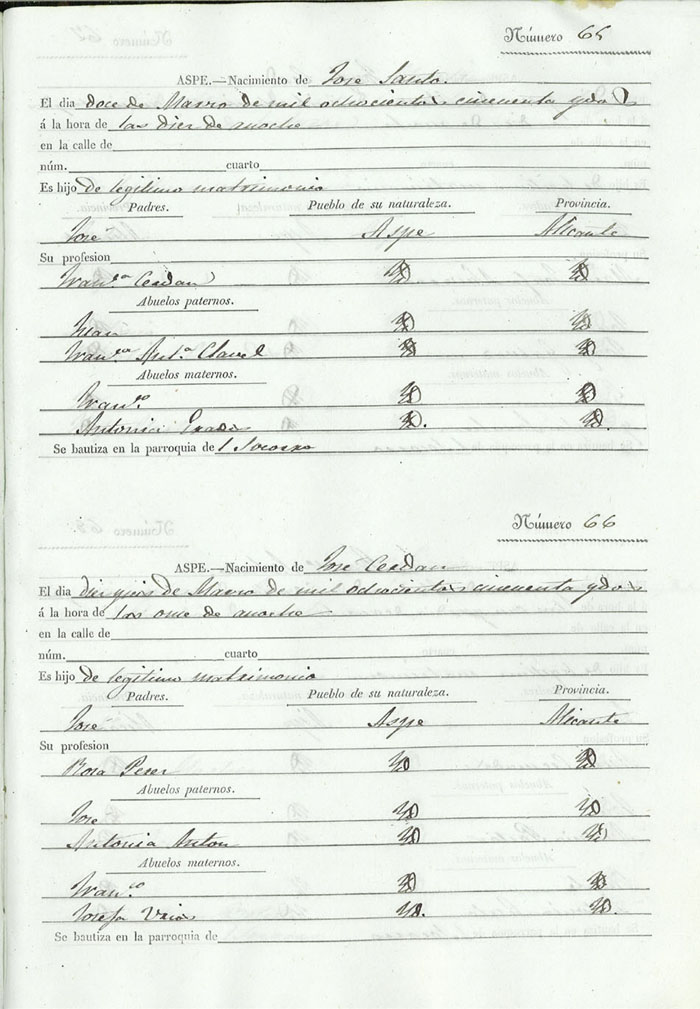 Número 65
ASPE.—Nacimiento de Jose Santo.
El dia doce de Marzo de mil ochocientos cincuenta y dos
á la hora de las diez de noche
en la calle de
núm. cuarto
Es hijo de legitimo matrimonio
Padres. Pueblo de su naturaleza. Provincia.
Jose Aspe Alicante
Su profesion
Fran.ca Cerdan
Abuelos paternos.
Juan
Fran.ca Ant.a
Abuelos maternos.
Fran.co
Antonia
Se bautiza en la parroquia de l Socorro
Número 66
ASPE.—Nacimiento de Jose Cerdan
El dia de Marzo de mil ochocientos cincuenta y dos
á la hora de las once de noche
en la calle de
núm. cuarto
Es hijo de legitimo matrimonio
Padres. Pueblo de su naturaleza. Provincia.
Jose Aspe Alicante
Su profesion
Rosa Perez
Abuelos paternos.
Jose
Antonia Anton
Abuelos maternos.
Fran.co
Josefa
Se bautiza en la parroquia de